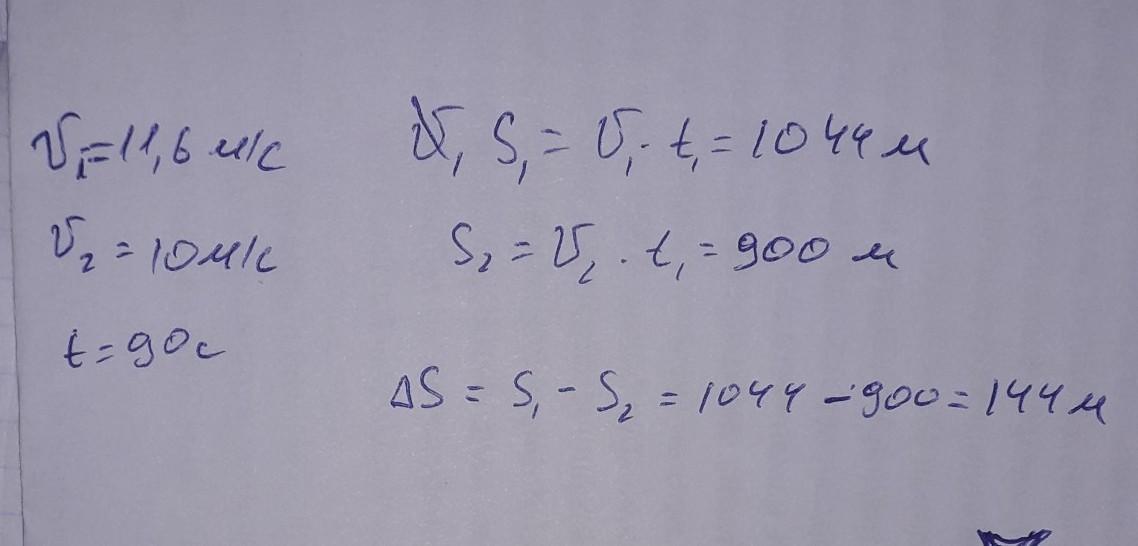 V₁=11,6 м/с
V₂ = 10 м/с
t = 90 с
V₁ S₁ = V₁ · t₁ = 1044 м
S₂ = V₂ · t₁ = 900 м
ΔS = S₁ - S₂ = 1044 - 900 = 144 м